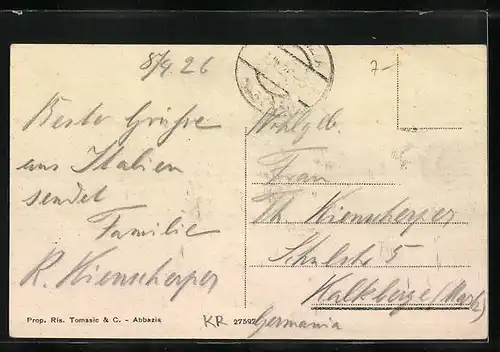 8/9.26
Beste Grüsse
aus Italien
sendet
Familie
R. Wienscherper
Wohlgeb.
Frau
Th. Wienscherper
Schulstr. 5
Kalkberge (Mark)
Germania
7-
Prop. Ris. Tomasic & C. - Abbazia
KR
27592